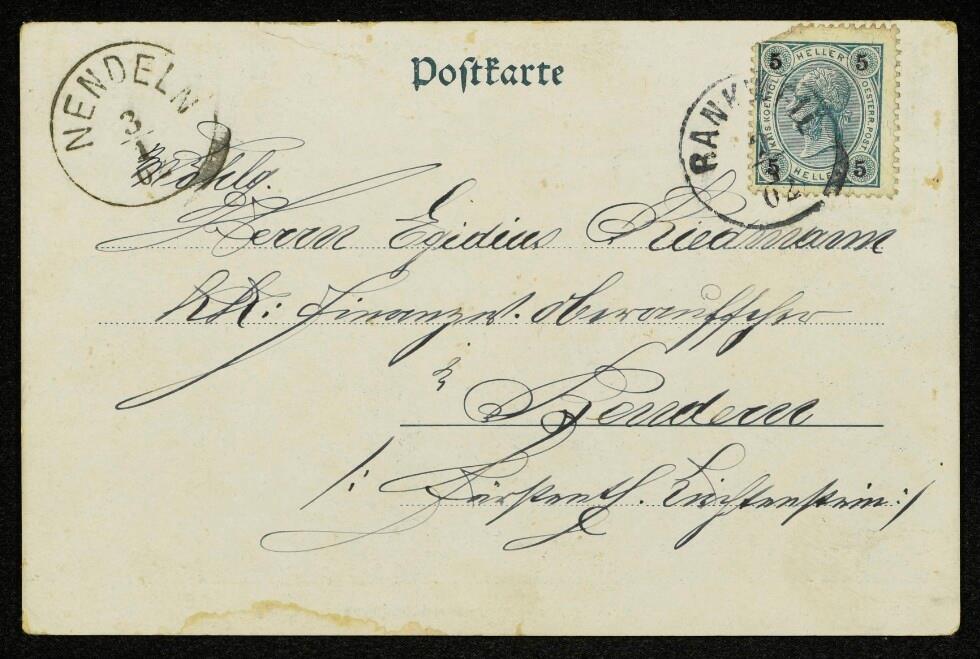 Postkarte
NENDELN
3/1
RANKWEIL
02
5 HELLER 5
KAIS. KOENIGL. OESTERR. POST
5 HELLER 5
Wohlg.
Herrn Egidius Riedmann
KK: Finanzw. Oberaufseher
z
Bendern
/: Fürstenth. Lichtenstein :/